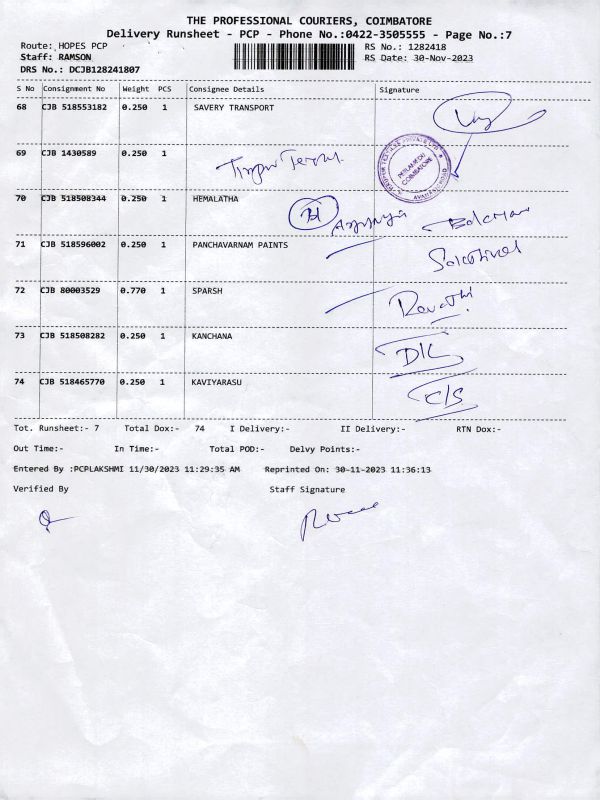 THE PROFESSIONAL COURIERS, COIMBATORE
Delivery Runsheet - PCP - Phone No.:0422-3505555 - Page No.:7
Route: HOPES PCP RS No.: 1282418
Staff: RAMSON RS Date: 30-Nov-2023
DRS No.: DCJB128241807
S No Consignment No Weight PCS Consignee Details Signature
68 CJB 518553182 0.250 1 SAVERY TRANSPORT
69 CJB 1430589 0.250 1
PEELAMEDU
COIMBATORE
70 CJB 518508344 0.250 1 HEMALATHA
H
71 CJB 518596002 0.250 1 PANCHAVARNAM PAINTS
72 CJB 80003529 0.770 1 SPARSH
Revathi
73 CJB 518508282 0.250 1 KANCHANA
74 CJB 518465770 0.250 1 KAVIYARASU
C/S
Tot. Runsheet:- 7 Total Dox:- 74 I Delivery:- II Delivery:- RTN Dox:-
Out Time:- In Time:- Total POD:- Delvy Points:-
Entered By :PCPLAKSHMI 11/30/2023 11:29:35 AM Reprinted On: 30-11-2023 11:36:13
Verified By Staff Signature